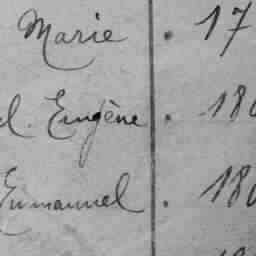 Marie . 17
l. Eugène . 180
Emmanuel . 180